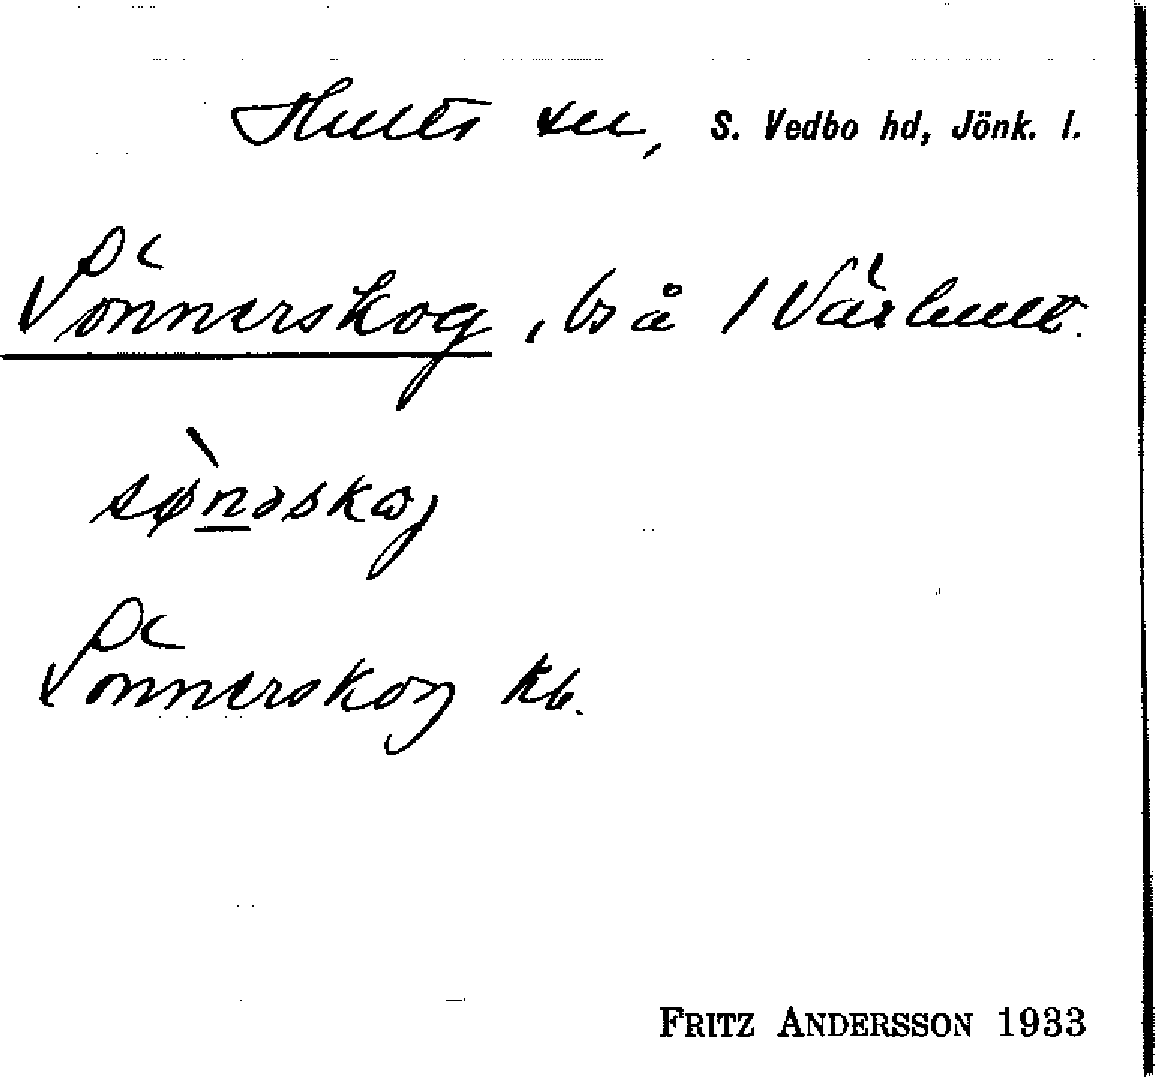 Hults sn, S. Vedbo hd, Jönk. l.
Sönnerskog, bs å 1 Värhult.
sø̀nəskoɡ
Sönnerskog kb.
FRITZ ANDERSSON 1933